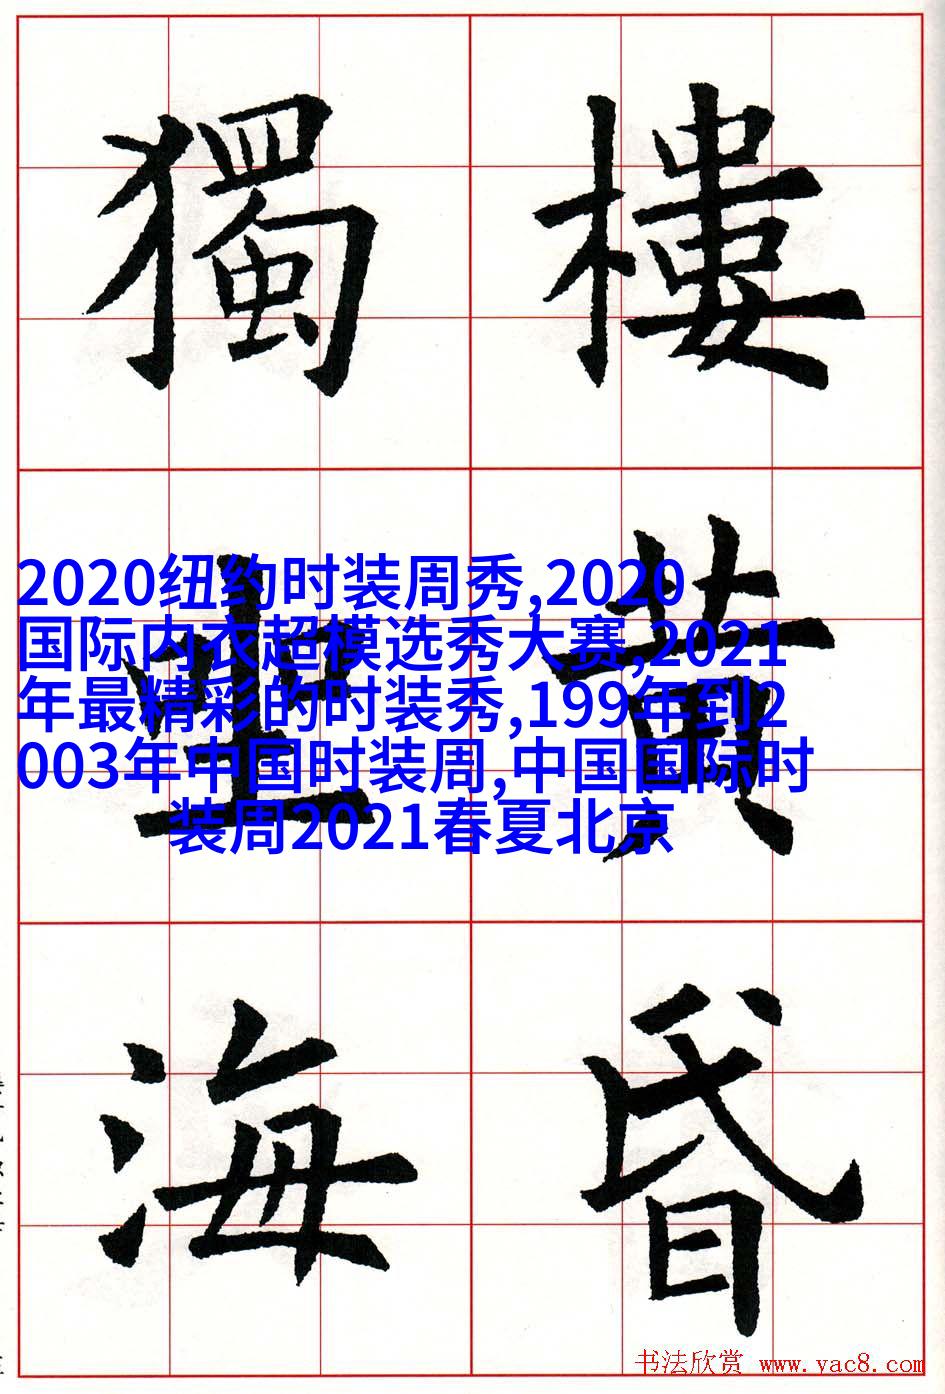 樓黄昏
獨坐海
2020纽约时装周秀,2020
国际内衣超模选秀大赛,2021
年最精彩的时装秀,199年到2
003年中国时装周,中国国际时
装周2021春夏北京
书法欣赏 www.yac8.com